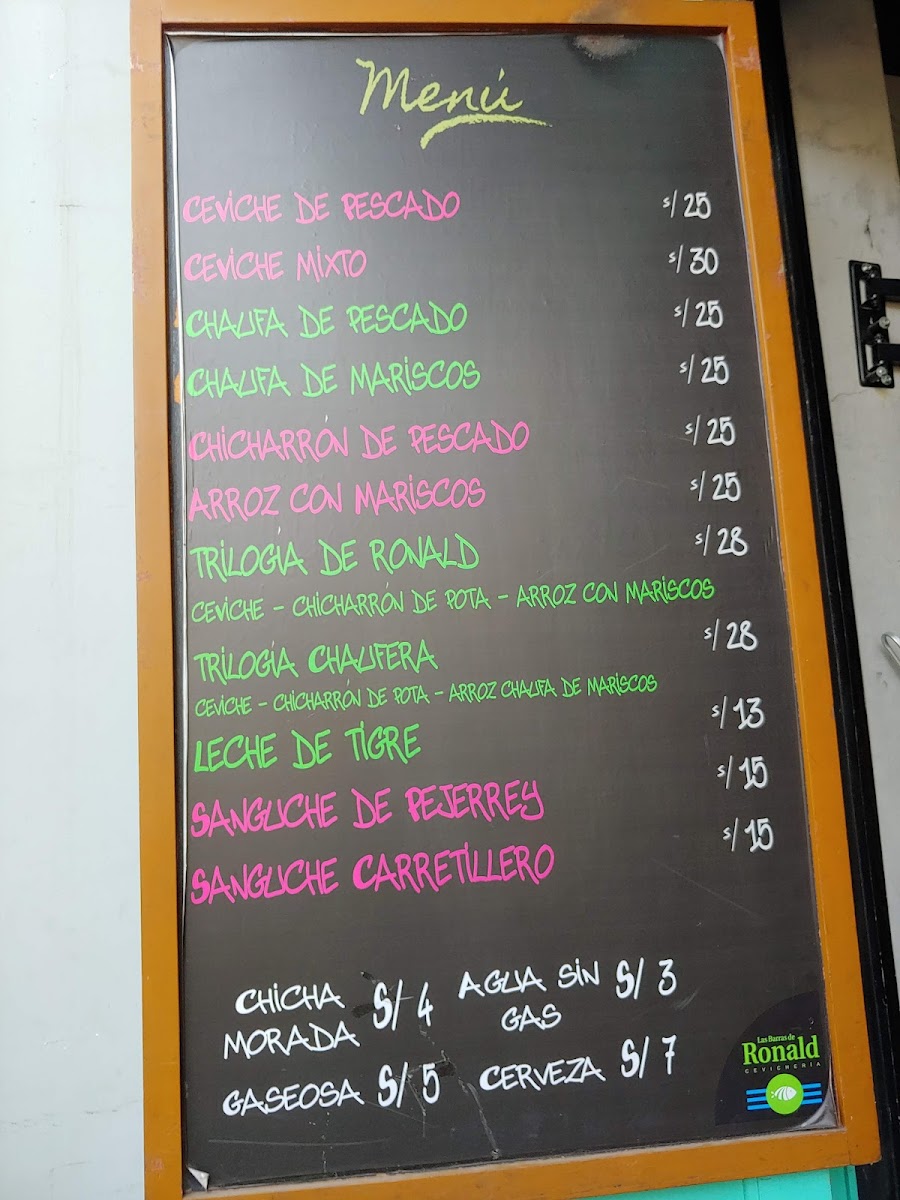 Menú
CEVICHE DE PESCADO S/ 25
CEVICHE MIXTO S/ 30
CHAUFA DE PESCADO S/ 25
CHAUFA DE MARISCOS S/ 25
CHICHARRÓN DE PESCADO S/ 25
ARROZ CON MARISCOS S/ 25
TRILOGÍA DE RONALD S/ 28
CEVICHE - CHICHARRÓN DE POTA - ARROZ CON MARISCOS
TRILOGÍA CHAUFERA S/ 28
CEVICHE - CHICHARRÓN DE POTA - ARROZ CHAUFA DE MARISCOS
LECHE DE TIGRE S/ 13
SANGUCHE DE PEJERREY S/ 15
SANGUCHE CARRETILLERO S/ 15
CHICHA MORADA S/ 4
AGUA SIN GAS S/ 3
GASEOSA S/ 5
CERVEZA S/ 7
Las Barras de
Ronald
CEVICHERÍA